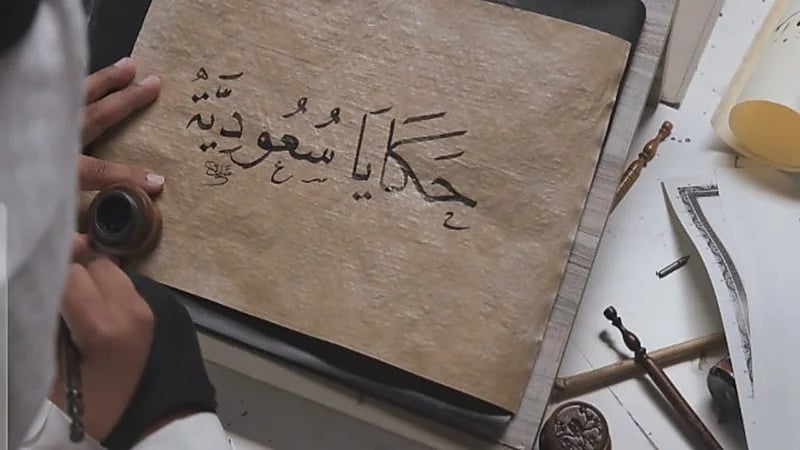 حَكَايَا سُعُودِيَّةٌ